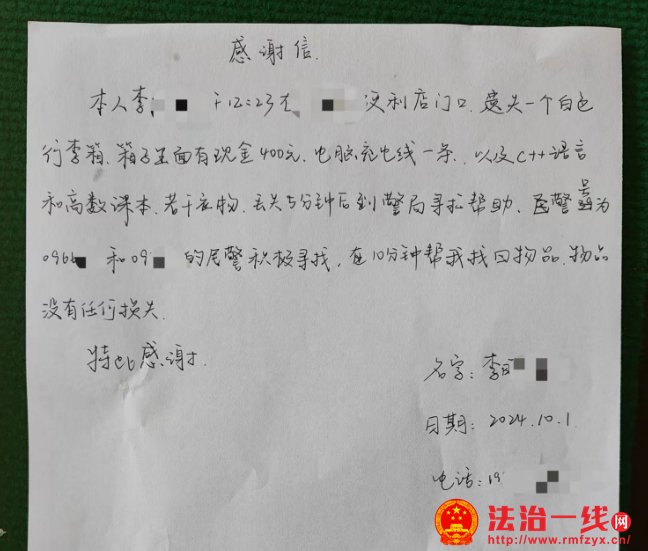 感谢信.
本人李 于12:23在 便利店门口.遗失一个白色
行李箱.箱子里面有现金400元.电脑充电线一条.以及C++语言
和高数课本.若干衣物.丢失5分钟后到警局寻找帮助.警号为
096 和09 的民警积极寻找,在10分钟帮我找回物品.物品
没有任何损失.
特此感谢.
名字:李
日期:2024.10.1
电话:19
法治一线网
http://www.rmfzyx.cn/